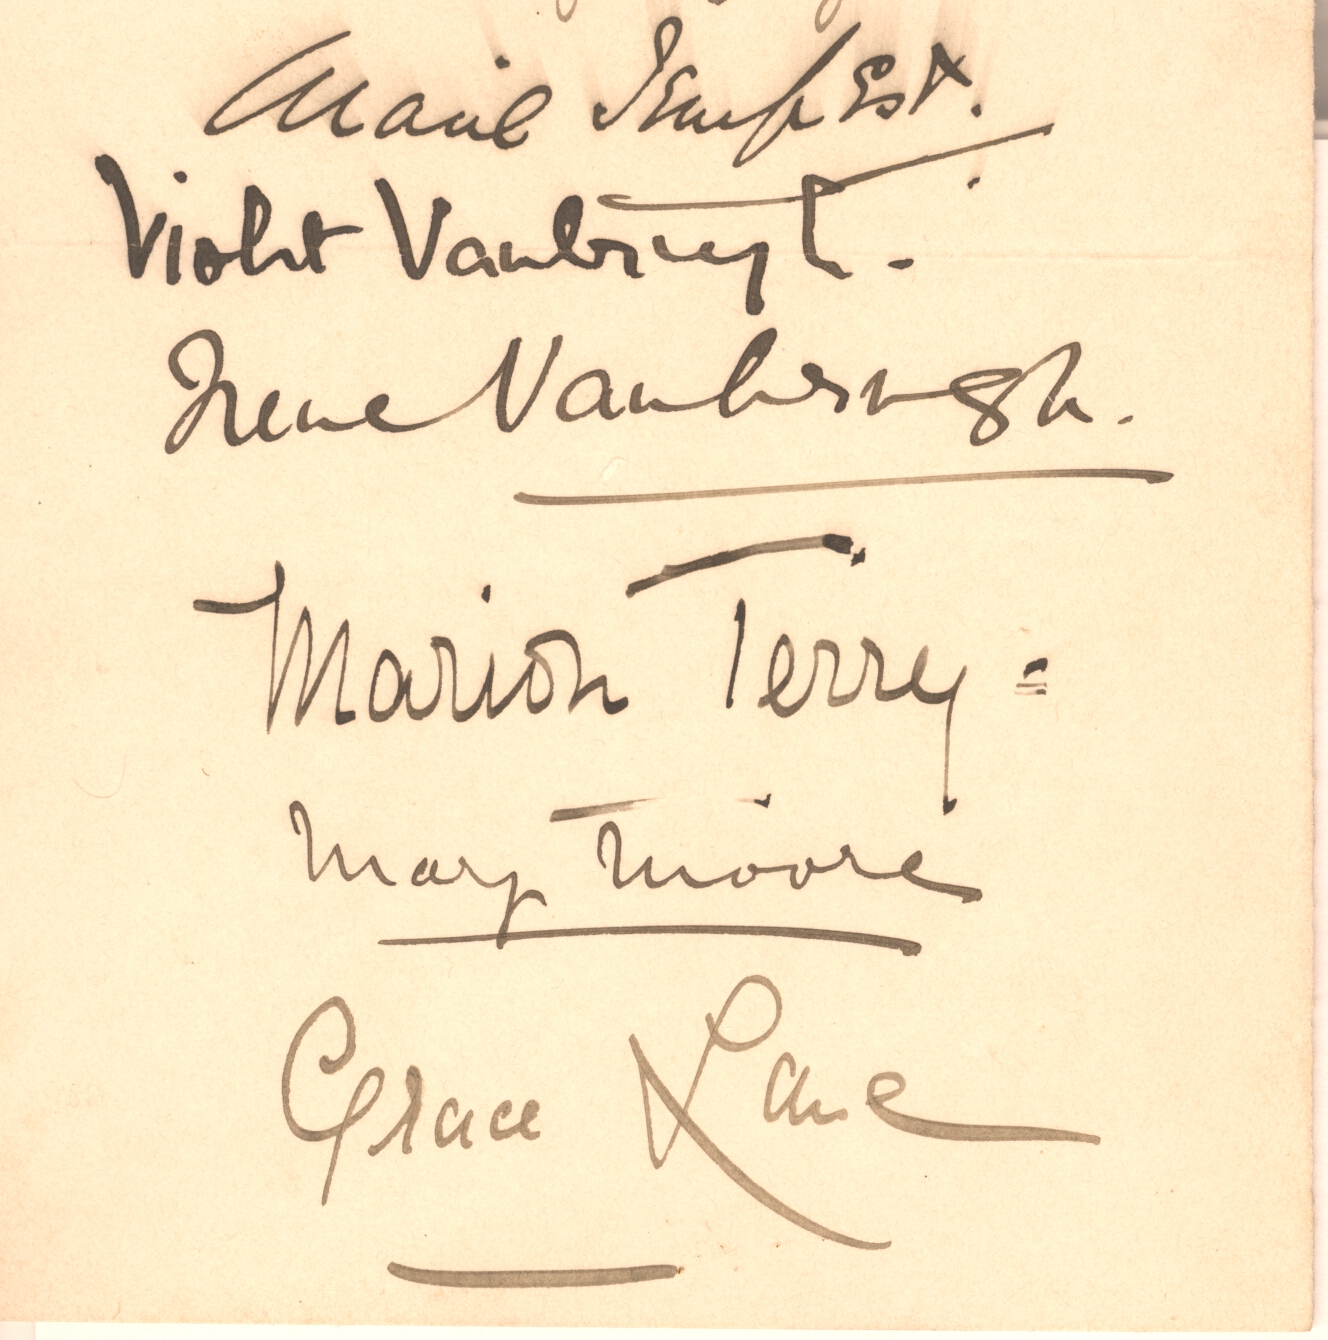 Marie Tempest.
Violet Vanbrugh.
Irene Vanbrugh.
Marion Terry =
Mary Moore
Grace Lane